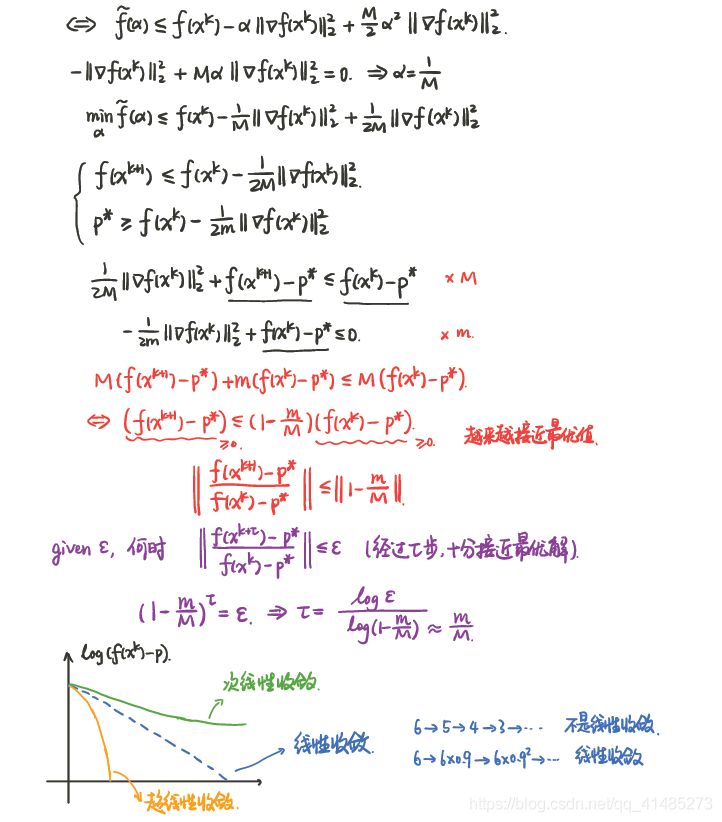 ⇔ f̃(α) ≤ f(xᵏ) - α ‖∇f(xᵏ)‖₂² + M/2 α² ‖∇f(xᵏ)‖₂².
-‖∇f(xᵏ)‖₂² + Mα ‖∇f(xᵏ)‖₂² = 0. ⇒ α = 1/M
min_α f̃(α) ≤ f(xᵏ) - 1/M ‖∇f(xᵏ)‖₂² + 1/2M ‖∇f(xᵏ)‖₂²
{ f(xᵏ⁺¹) ≤ f(xᵏ) - 1/2M ‖∇f(xᵏ)‖₂².
p* ≥ f(xᵏ) - 1/2m ‖∇f(xᵏ)‖₂²
1/2M ‖∇f(xᵏ)‖₂² + f(xᵏ⁺¹) - p* ≤ f(xᵏ) - p* × M
- 1/2m ‖∇f(xᵏ)‖₂² + f(xᵏ) - p* ≤ 0. × m.
M(f(xᵏ⁺¹) - p*) + m(f(xᵏ) - p*) ≤ M(f(xᵏ) - p*).
⇔ (f(xᵏ⁺¹) - p*) ≤ (1 - m/M)(f(xᵏ) - p*).
≥0. ≥0. 越来越接近最优值.
‖ f(xᵏ⁺¹) - p* / f(xᵏ) - p* ‖ ≤ ‖1 - m/M‖.
given ε, 何时 ‖ f(xᵏ⁺ᵗ) - p* / f(xᵏ) - p* ‖ ≤ ε (经过τ步,十分接近最优解).
(1 - m/M)^τ = ε. ⇒ τ = log ε / log(1 - m/M) ≈ m/M.
log(f(xᵏ) - p).
次线性收敛.
线性收敛.
超线性收敛.
6→5→4→3→··· 不是线性收敛.
6→6×0.9→6×0.9²→··· 线性收敛
https://blog.csdn.net/qq_41485273